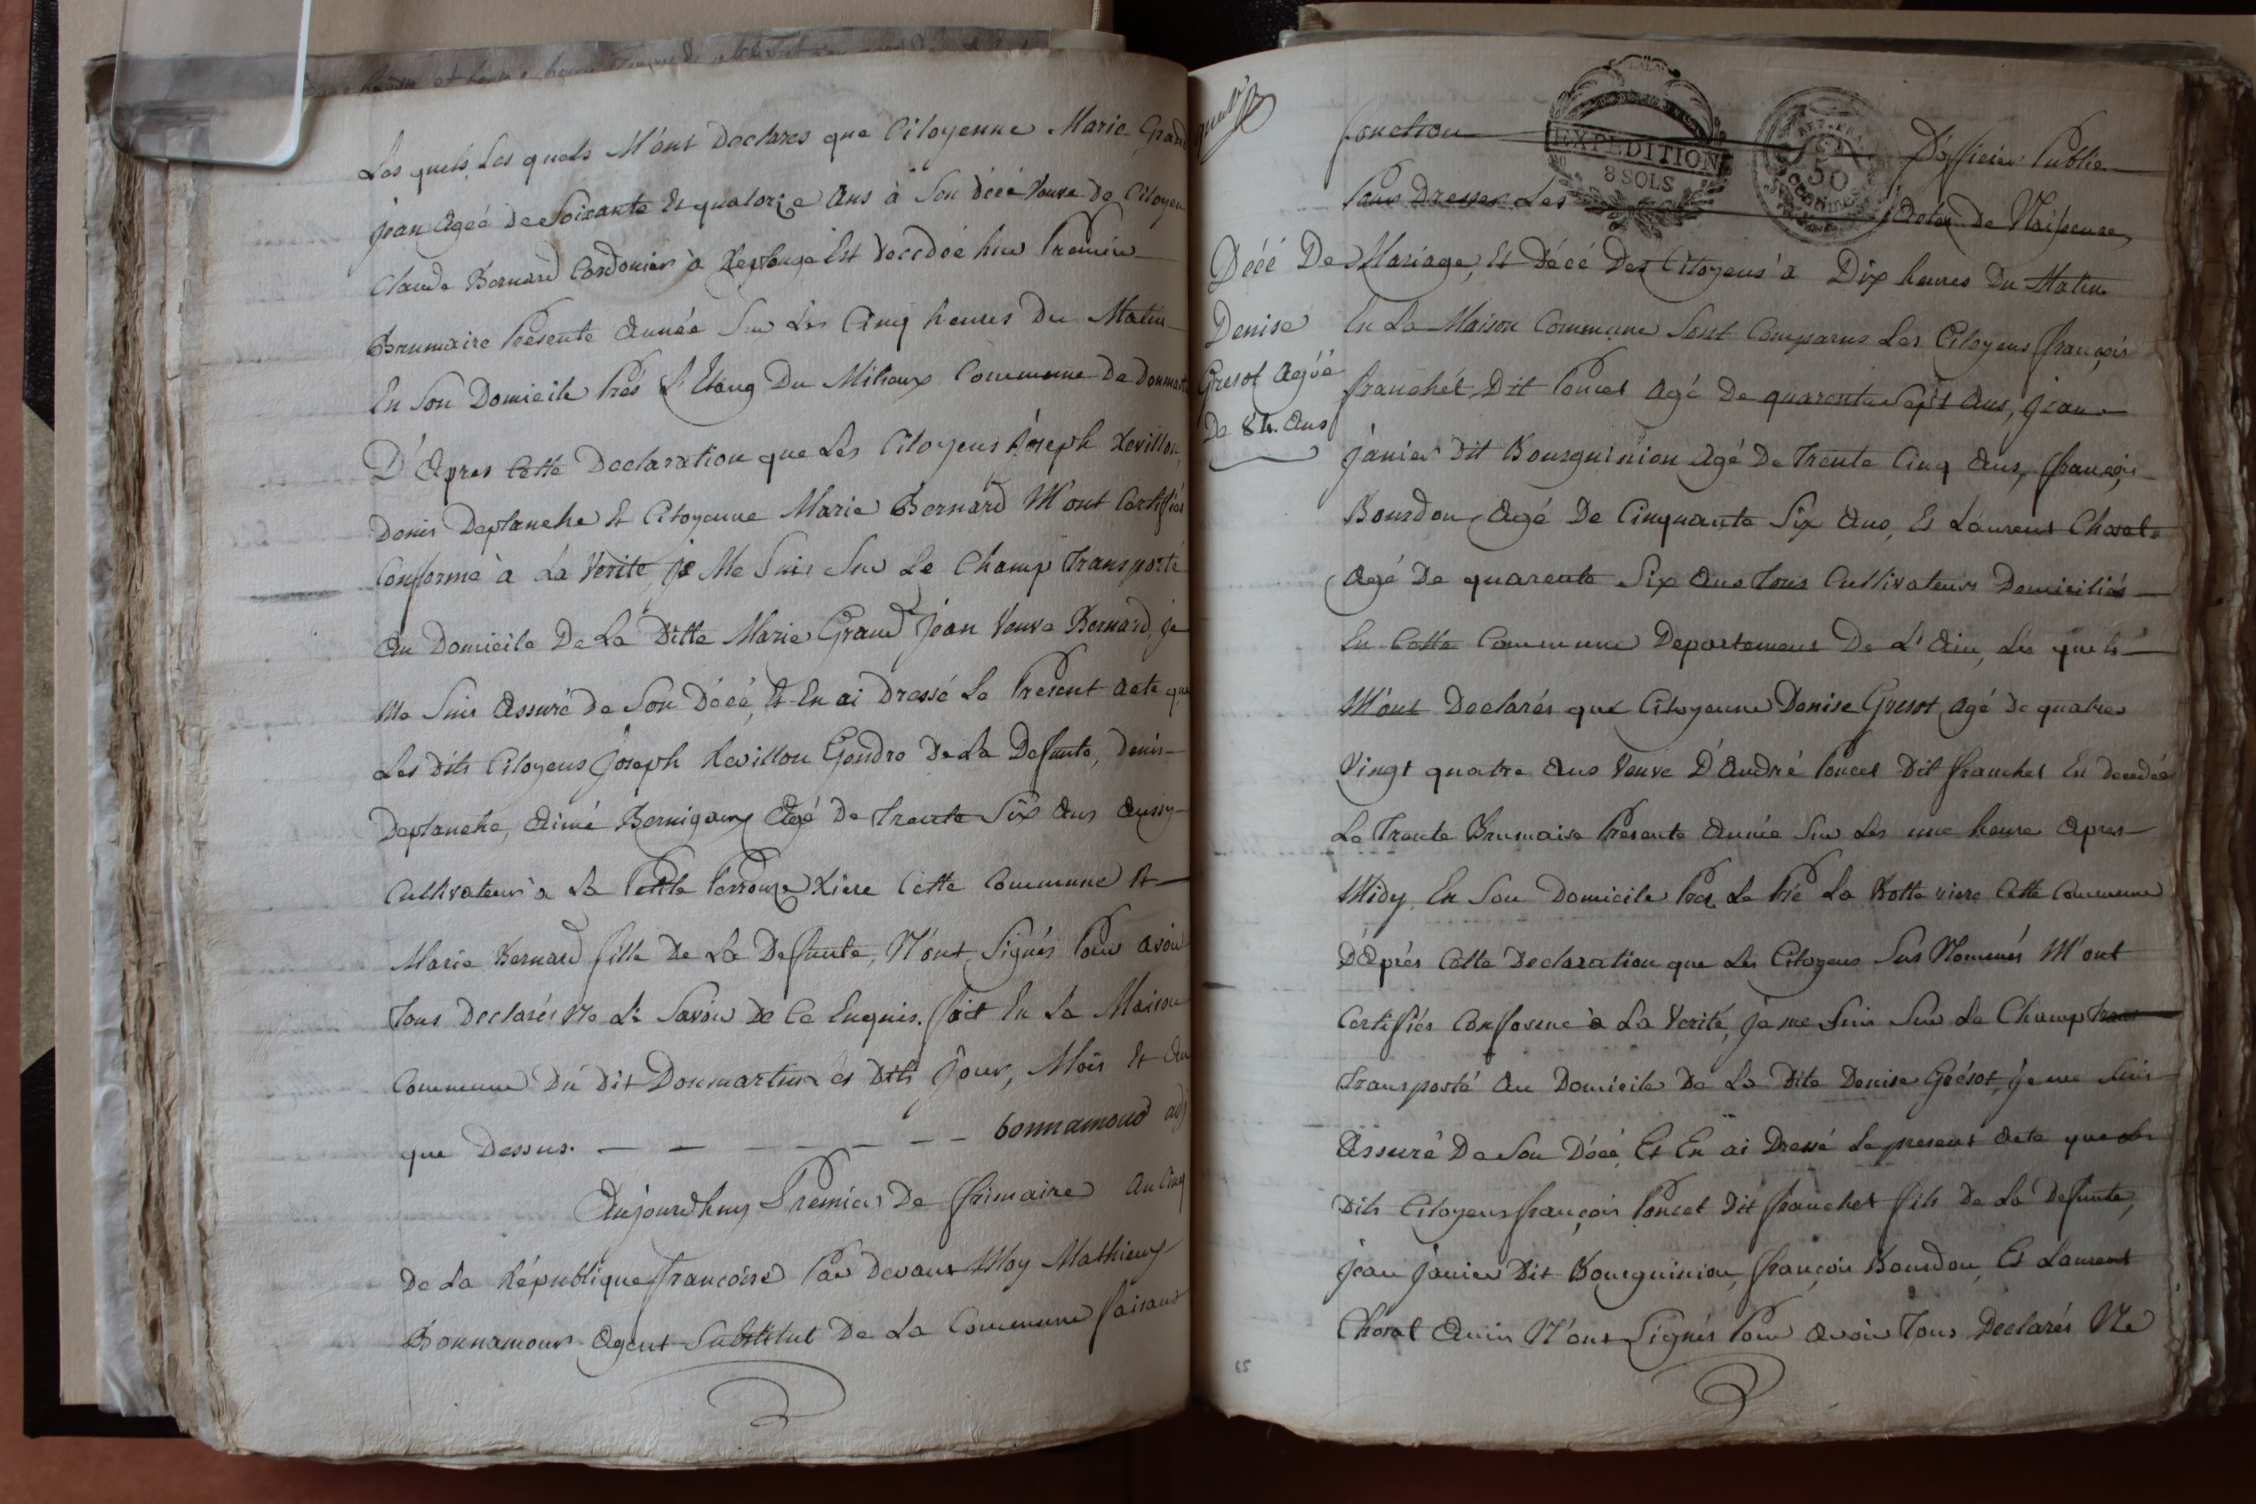 Les quels, Les quels M'ont Declares que Citoyenne Marie Grand
jean agéé de Soixante Et quatorze ans à Son décé Veuve de Citoyen
Claude Bernard Cordonier à Replonge Est decedéé hier Premier
Brumaire Presente année Sur Les Cinq heures Du Matin
En Son Domicile Prés L'Etang Du Milieux Commune de Donmart
D'apres Cette Declaration que Les Citoyens Joseph Revillon,
Denis Deplanche Et Citoyenne Marie Bernard M'ont Certifiés
Conforme à La Verité, je Me Suis Sur Le Champ Transporté
au Domicile De La Ditte Marie Grand Jean Veuve Bernard, je
Me Suis assuré de Son Décé, Et En ai Dressé Le Present acte que
Les dits Citoyens Joseph Revillon Gendre De La Defunte, Denis
Deplanche, aimé Bernigaux agé De Trente Six ans aussy
Cultivateur à La Petite Cette Commune Et
Marie Bernard fille De La Defunte, N'ont Signés Pour avoir
Tous Declarés Ne Le Savoir De Ce Enquis. fait En La Maison
Commune Du dit Donmartin Les Dits Jour, Mois Et an
que Dessus. — — — — — — — bonnamour adj
Aujourdhuy Premier De frimaire an Cinq
De La République francoise Par devant Moy Mathieux
Bonnamour Agent Substitut De La Commune faisant
fonction D'officier Public
EXPEDITION
8 SOLS
50
Pour Dresser Les Actes De Naissance,
Décé De
Denise
Gresot agéé
De 84. ans
Mariage, Et Décé Des Citoyens à Dix heures Du Matin
En La Maison Commune Sont Comparus Les Citoyens françois
franchet Dit Poncet agé De quarente Sept ans, jean
janier Dit Bourguinion agé De Trente Cinq ans, françois
Bourdon, agé De Cinquante Six ans, Et Laurent Choral
agé De quarente Six ans Tous Cultivateurs Domiciliés
En Cette Commune Departement De L'Ain, Les quels
M'ont Declarés que Citoyenne Denise Gresot, agé De quatre
Vingt quatre ans Veuve D'André Poncet Dit franchet En decedéé
Le Trente Brumaire Presente année Sur Les une heure apres
Midy En Son Domicile Pres Le Pré La Cette Commune
D'Après Cette Declaration que Les Citoyens Sus Nommés M'ont
Certifiés Conforme à La Verité, je me Suis Sur Le Champ
Transporté au Domicile De La Dite Denise Grésot, je me Suis
assuré De Son Décé, Et En ai Dressé Le present acte que Les
Dits Citoyens françois Poncet Dit franchet fils De La Defunte,
jean janier Dit Bourguinion, françois Bourdon, Et Laurent
Choral N'ont Signés Pour avoir Tous Declarés Ne